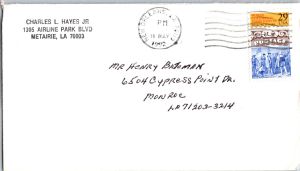 CHARLES L. HAYES JR
1305 AIRLINE PARK BLVD
METAIRIE, LA 70003
PM
1992
29
MR HENRY BATEMAN
6504 CYPRESS POINT DR.
MONROE
LA 71203-3214